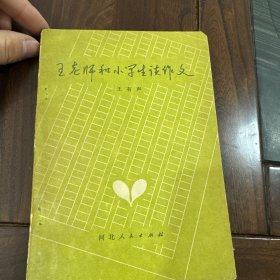 王老师和小学生谈作文
王有声
河北人民出版社